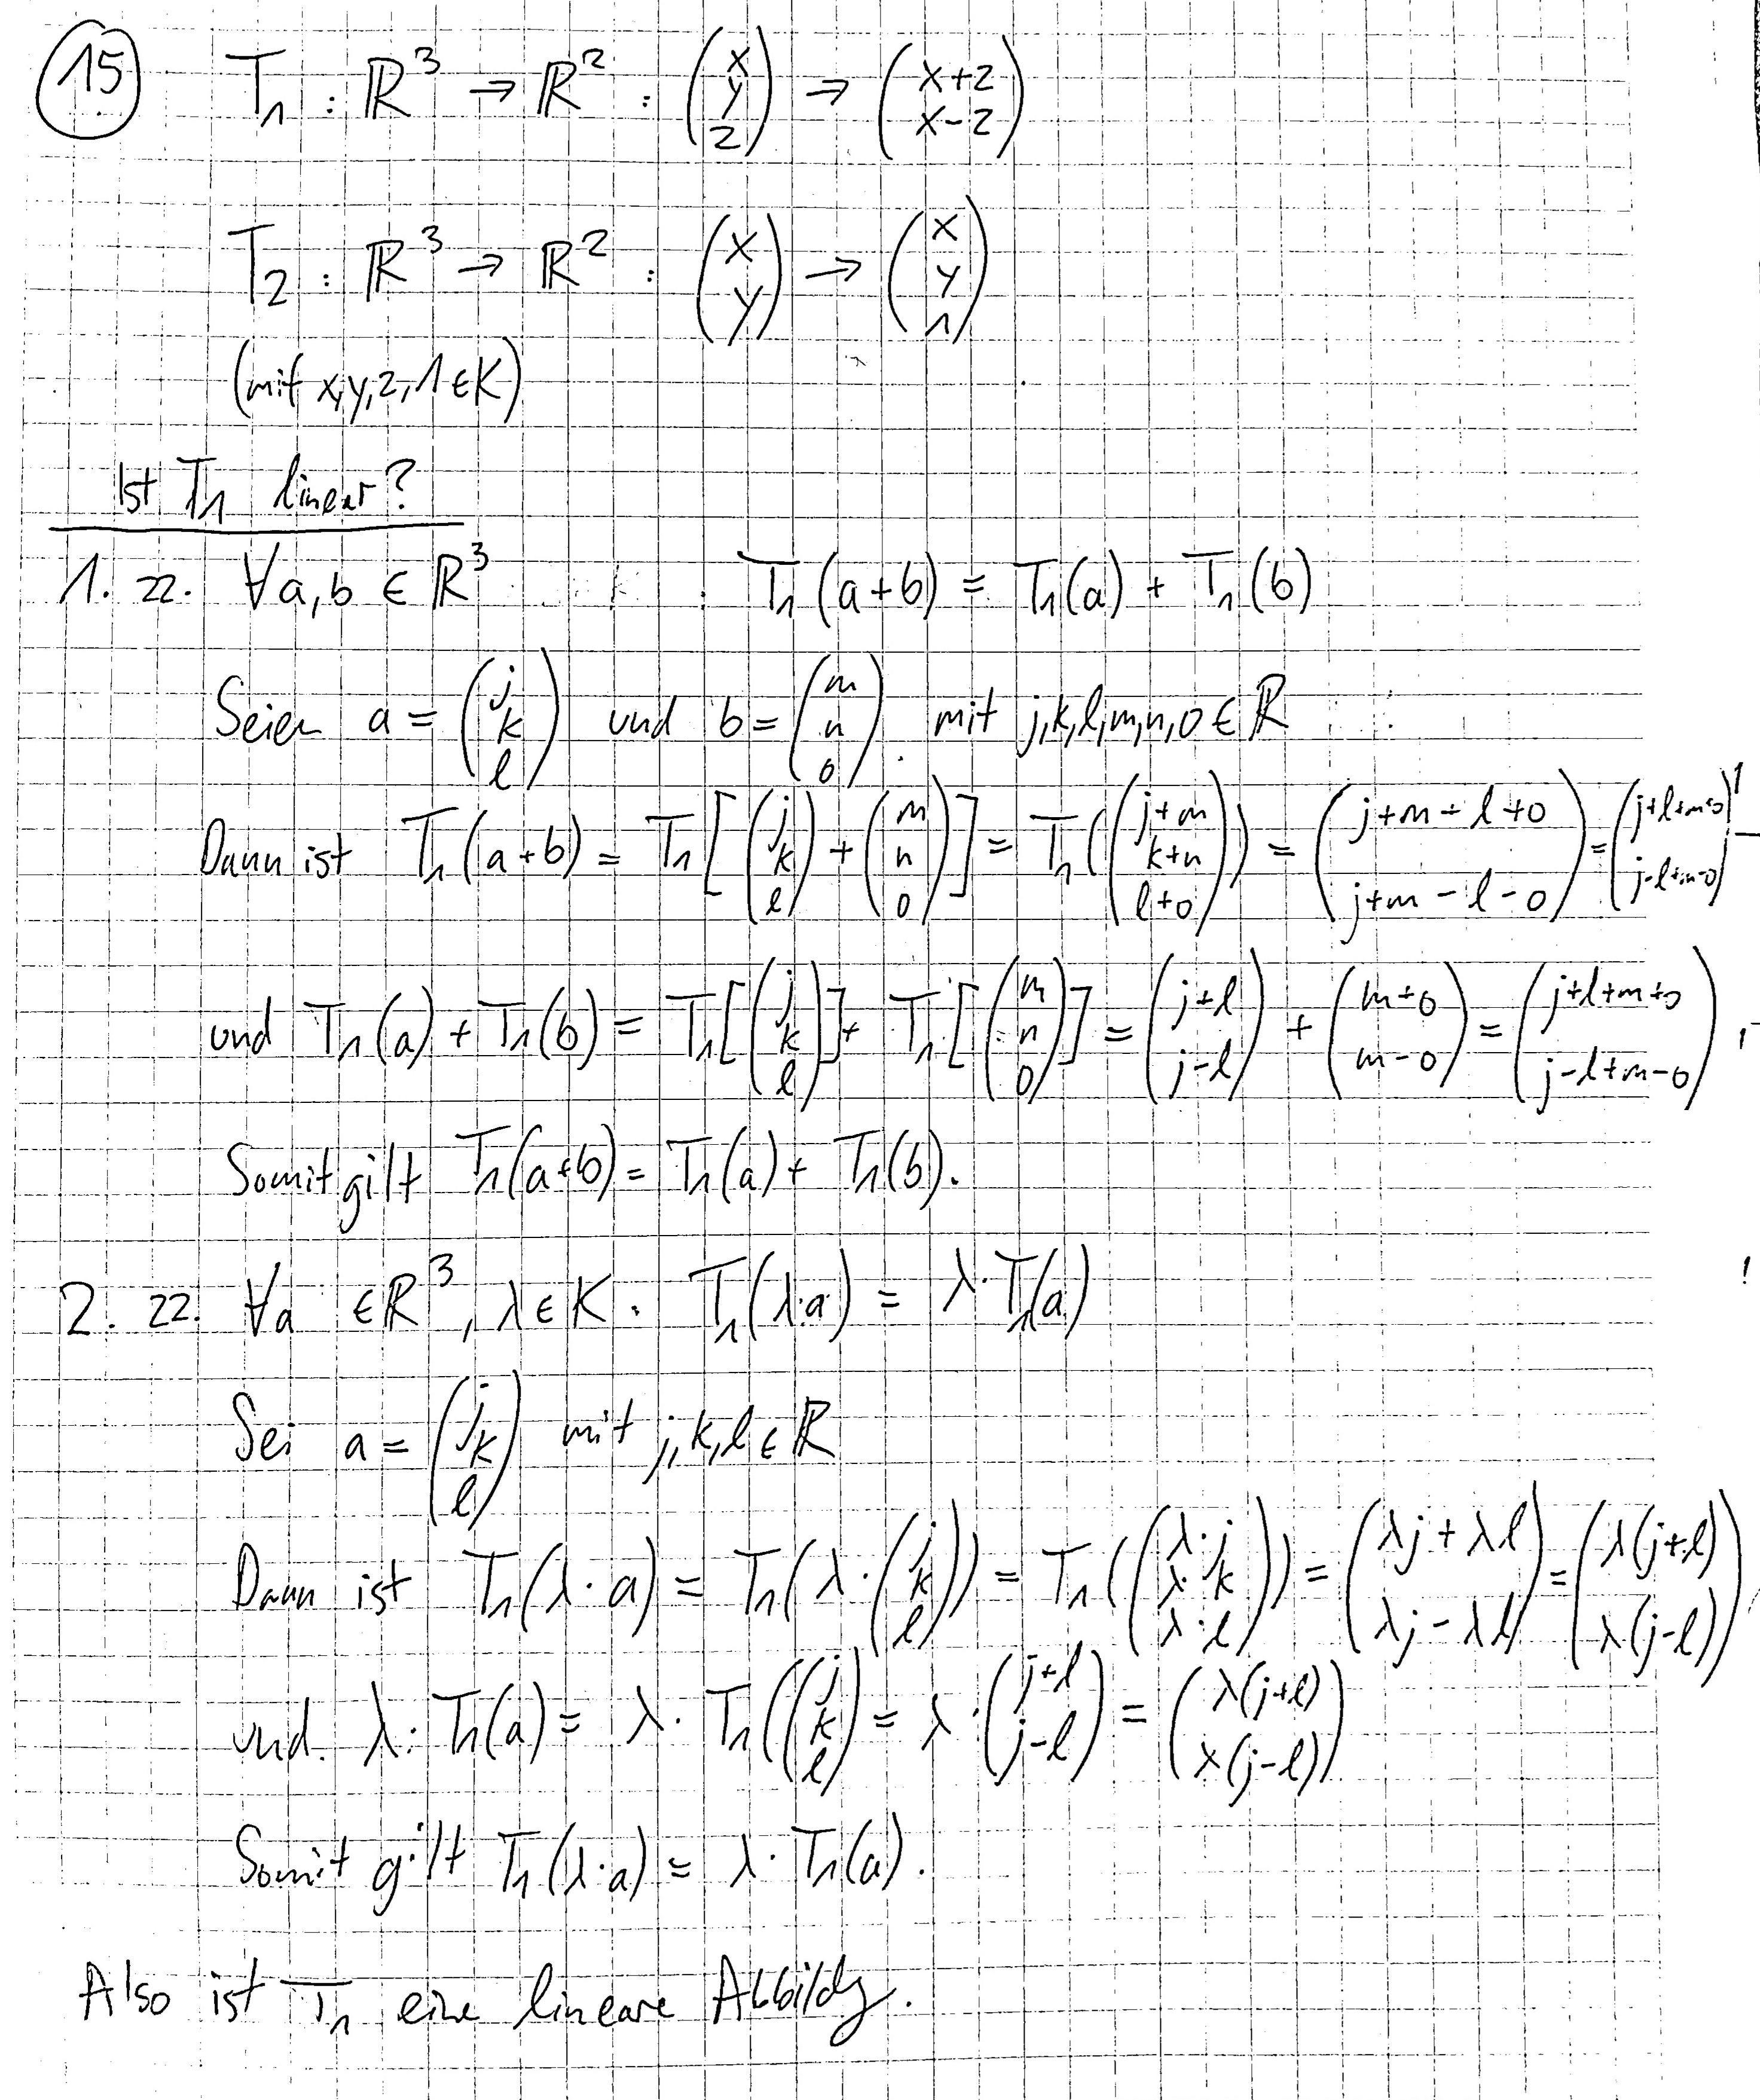 15 T₁ : ℝ³ → ℝ² : (x y z) → (x+z x-z)
T₂ : ℝ³ → ℝ² : (x y) → (x y 1)
(mit x,y,z,1 ∈ K)
Ist T₁ linear?
1. zz. ∀a,b ∈ ℝ³ : T₁(a+b) = T₁(a) + T₁(b)
Seien a = (j k l) und b = (m n o) mit j,k,l,m,n,o ∈ ℝ
Dann ist T₁(a+b) = T₁[(j k l) + (m n o)] = T₁((j+m k+n l+o)) = (j+m+l+o j+m-l-o) = (j+l+m+o j-l+m-o)
und T₁(a) + T₁(b) = T₁[(j k l)] + T₁[(m n o)] = (j+l j-l) + (m+o m-o) = (j+l+m+o j-l+m-o),
Somit gilt T₁(a+b) = T₁(a) + T₁(b).
2. zz. ∀a ∈ ℝ³, λ ∈ K : T₁(λ·a) = λ·T₁(a)
Sei a = (j k l) mit j,k,l ∈ ℝ
Dann ist T₁(λ·a) = T₁(λ·(j k l)) = T₁((λ·j λ·k λ·l)) = (λj+λl λj-λl) = (λ(j+l) λ(j-l))
und λ·T₁(a) = λ·T₁((j k l) = λ·(j+l j-l) = (λ(j+l) λ(j-l))
Somit gilt T₁(λ·a) = λ·T₁(a).
Also ist T₁ eine lineare Abbildg.